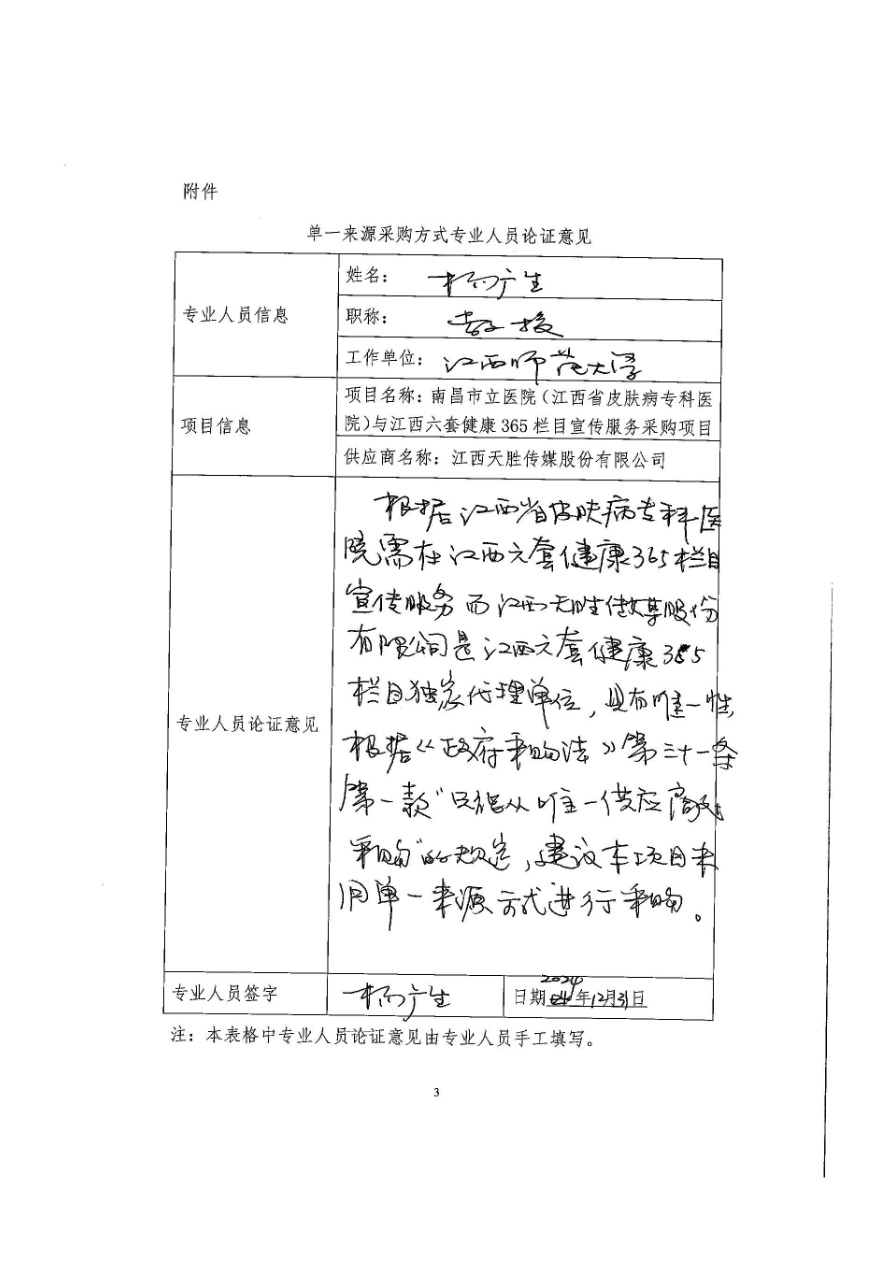 附件
单一来源采购方式专业人员论证意见
专业人员信息
姓名：杨广生
职称：教授
工作单位：江西师范大学
项目信息
项目名称：南昌市立医院（江西省皮肤病专科医
院）与江西六套健康365栏目宣传服务采购项目
供应商名称：江西天胜传媒股份有限公司
专业人员论证意见
根据江西省皮肤病专科医
院需在江西六套健康365栏目
宣传服务而江西天胜传媒股份
有限公司是江西六套健康365
栏目独家代理单位，具有唯一性
根据《政府采购法》第三十一条
第一款“只能从唯一供应商处
采购”的规定，建议本项目采
用单一来源方式进行采购。
专业人员签字
杨广生
日期2024年12月31日
注：本表格中专业人员论证意见由专业人员手工填写。
3